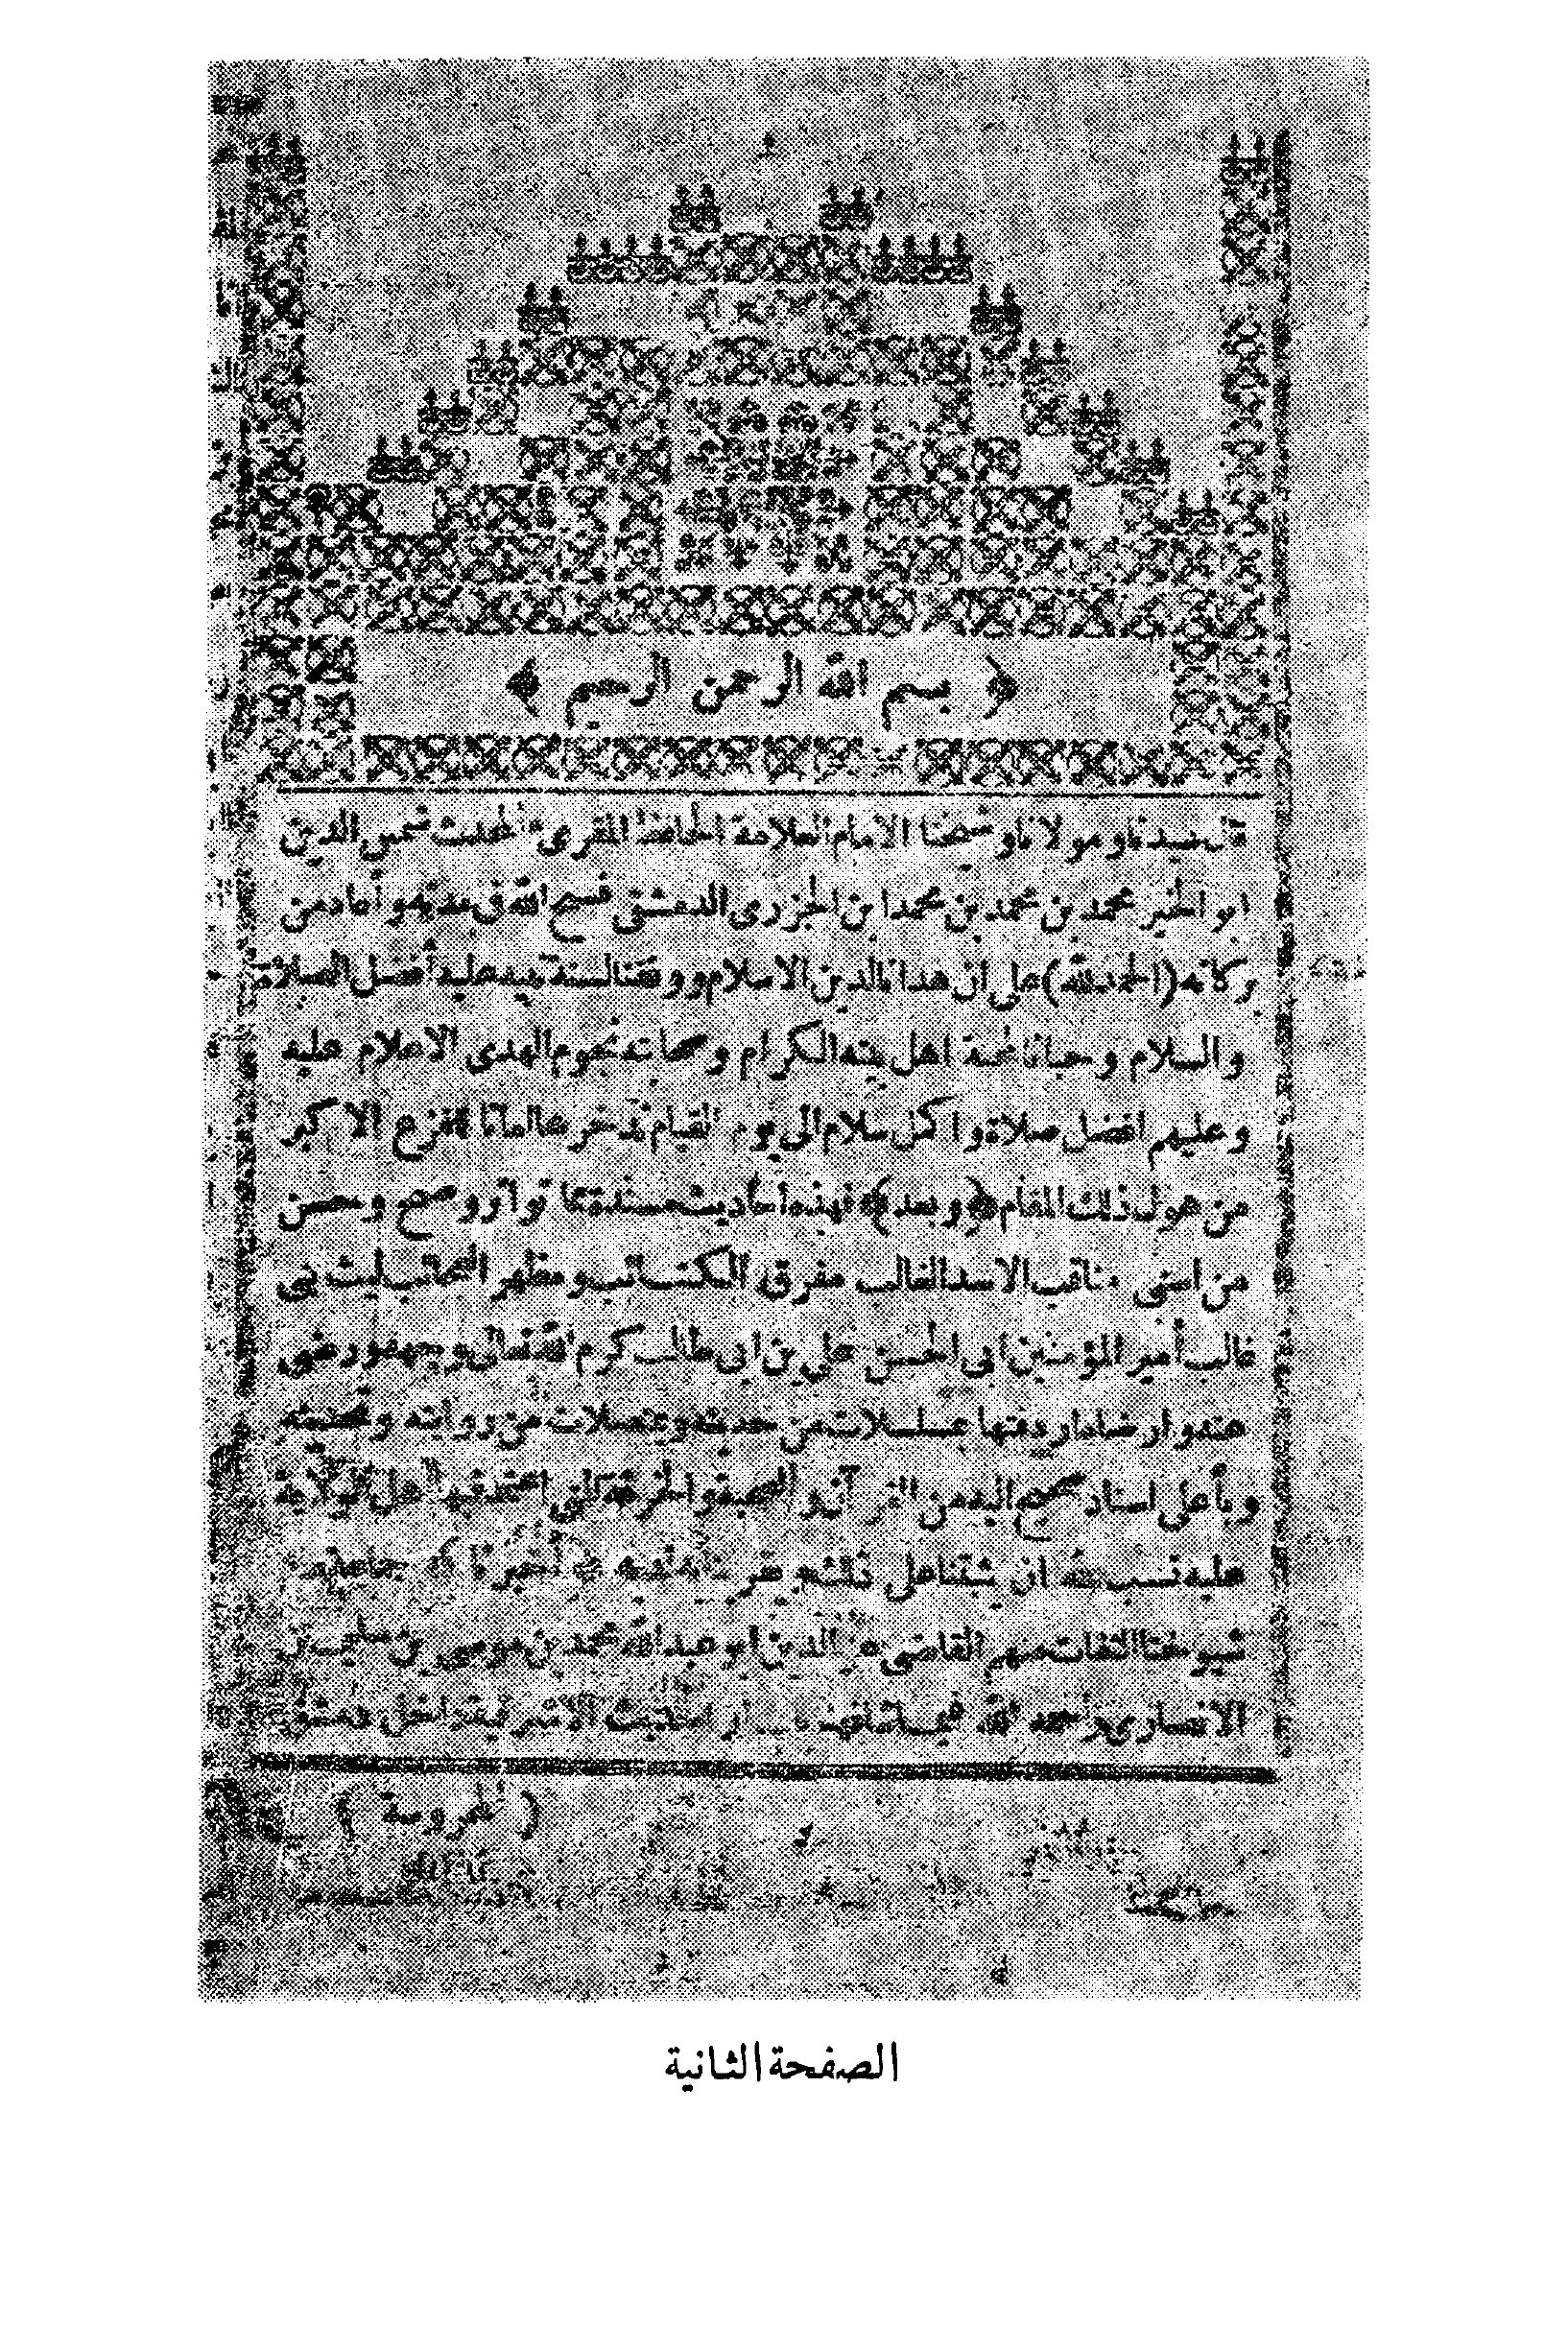 ﴿ بسم الله الرحمن الرحيم ﴾
قال سيدنا ومولانا وشيخنا الامام العلامة الحافظ المقرئ المحدث شمس الدين
ابو الخير محمد بن محمد بن محمد ابن الجزرى الدمشقى فسح الله فى مدته وأعاد من
بركاته (الحمد لله) على ان هدانا لدين الاسلام ووفقنا لسنة نبيه عليه أفضل الصلاة
والسلام وحبانا محبة اهل بيته الكرام وصحابته نجوم الهدى الاعلام عليه
وعليهم افضل صلاة واكمل سلام الى يوم القيام ندخرها امانا لفزع الاكبر
من هول ذلك المقام ﴿وبعد﴾ فهذه أحاديث مسندة مما تواتر وصح وحسن
من اسنى مناقب الاسد الغالب مفرق الكتائب ومظهر العجائب ليث بنى
غالب أمير المؤمنين ابى الحسن على بن ابى طالب كرم الله تعالى وجهه ورضى
عنه وارضاه اردفتها بمسلسلات من حديثه وبمتصلات من روايته وتحديثه
وبأعلى اسناد صحيح اليه من القرآن والصحبة والخرقة التى اعتمد فيها اهل الولاية
عليه نسب لله ان يثبتنا على ذلك أخبرنا جماعة من
شيوخنا الثقات منهم القاضى عز الدين ابو عبد الله محمد بن موسى بن سليمان
الانصارى رحمه الله فيما شافهنا الاشرفية داخل دمشق
( المحروسة )
الصفحة الثانية